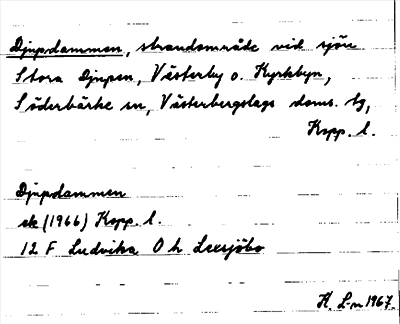 Djupdammen, strandområde vid sjön
Stora Djupen, Västerby o. Kyrkbyn,
Söderbärke sn, Västerbergslags doms. tg,
Kopp. l.
Djupdammen
ek (1966) Kopp. l.
12 F Ludvika O h Lexsjöbo
K. L-n 1967.